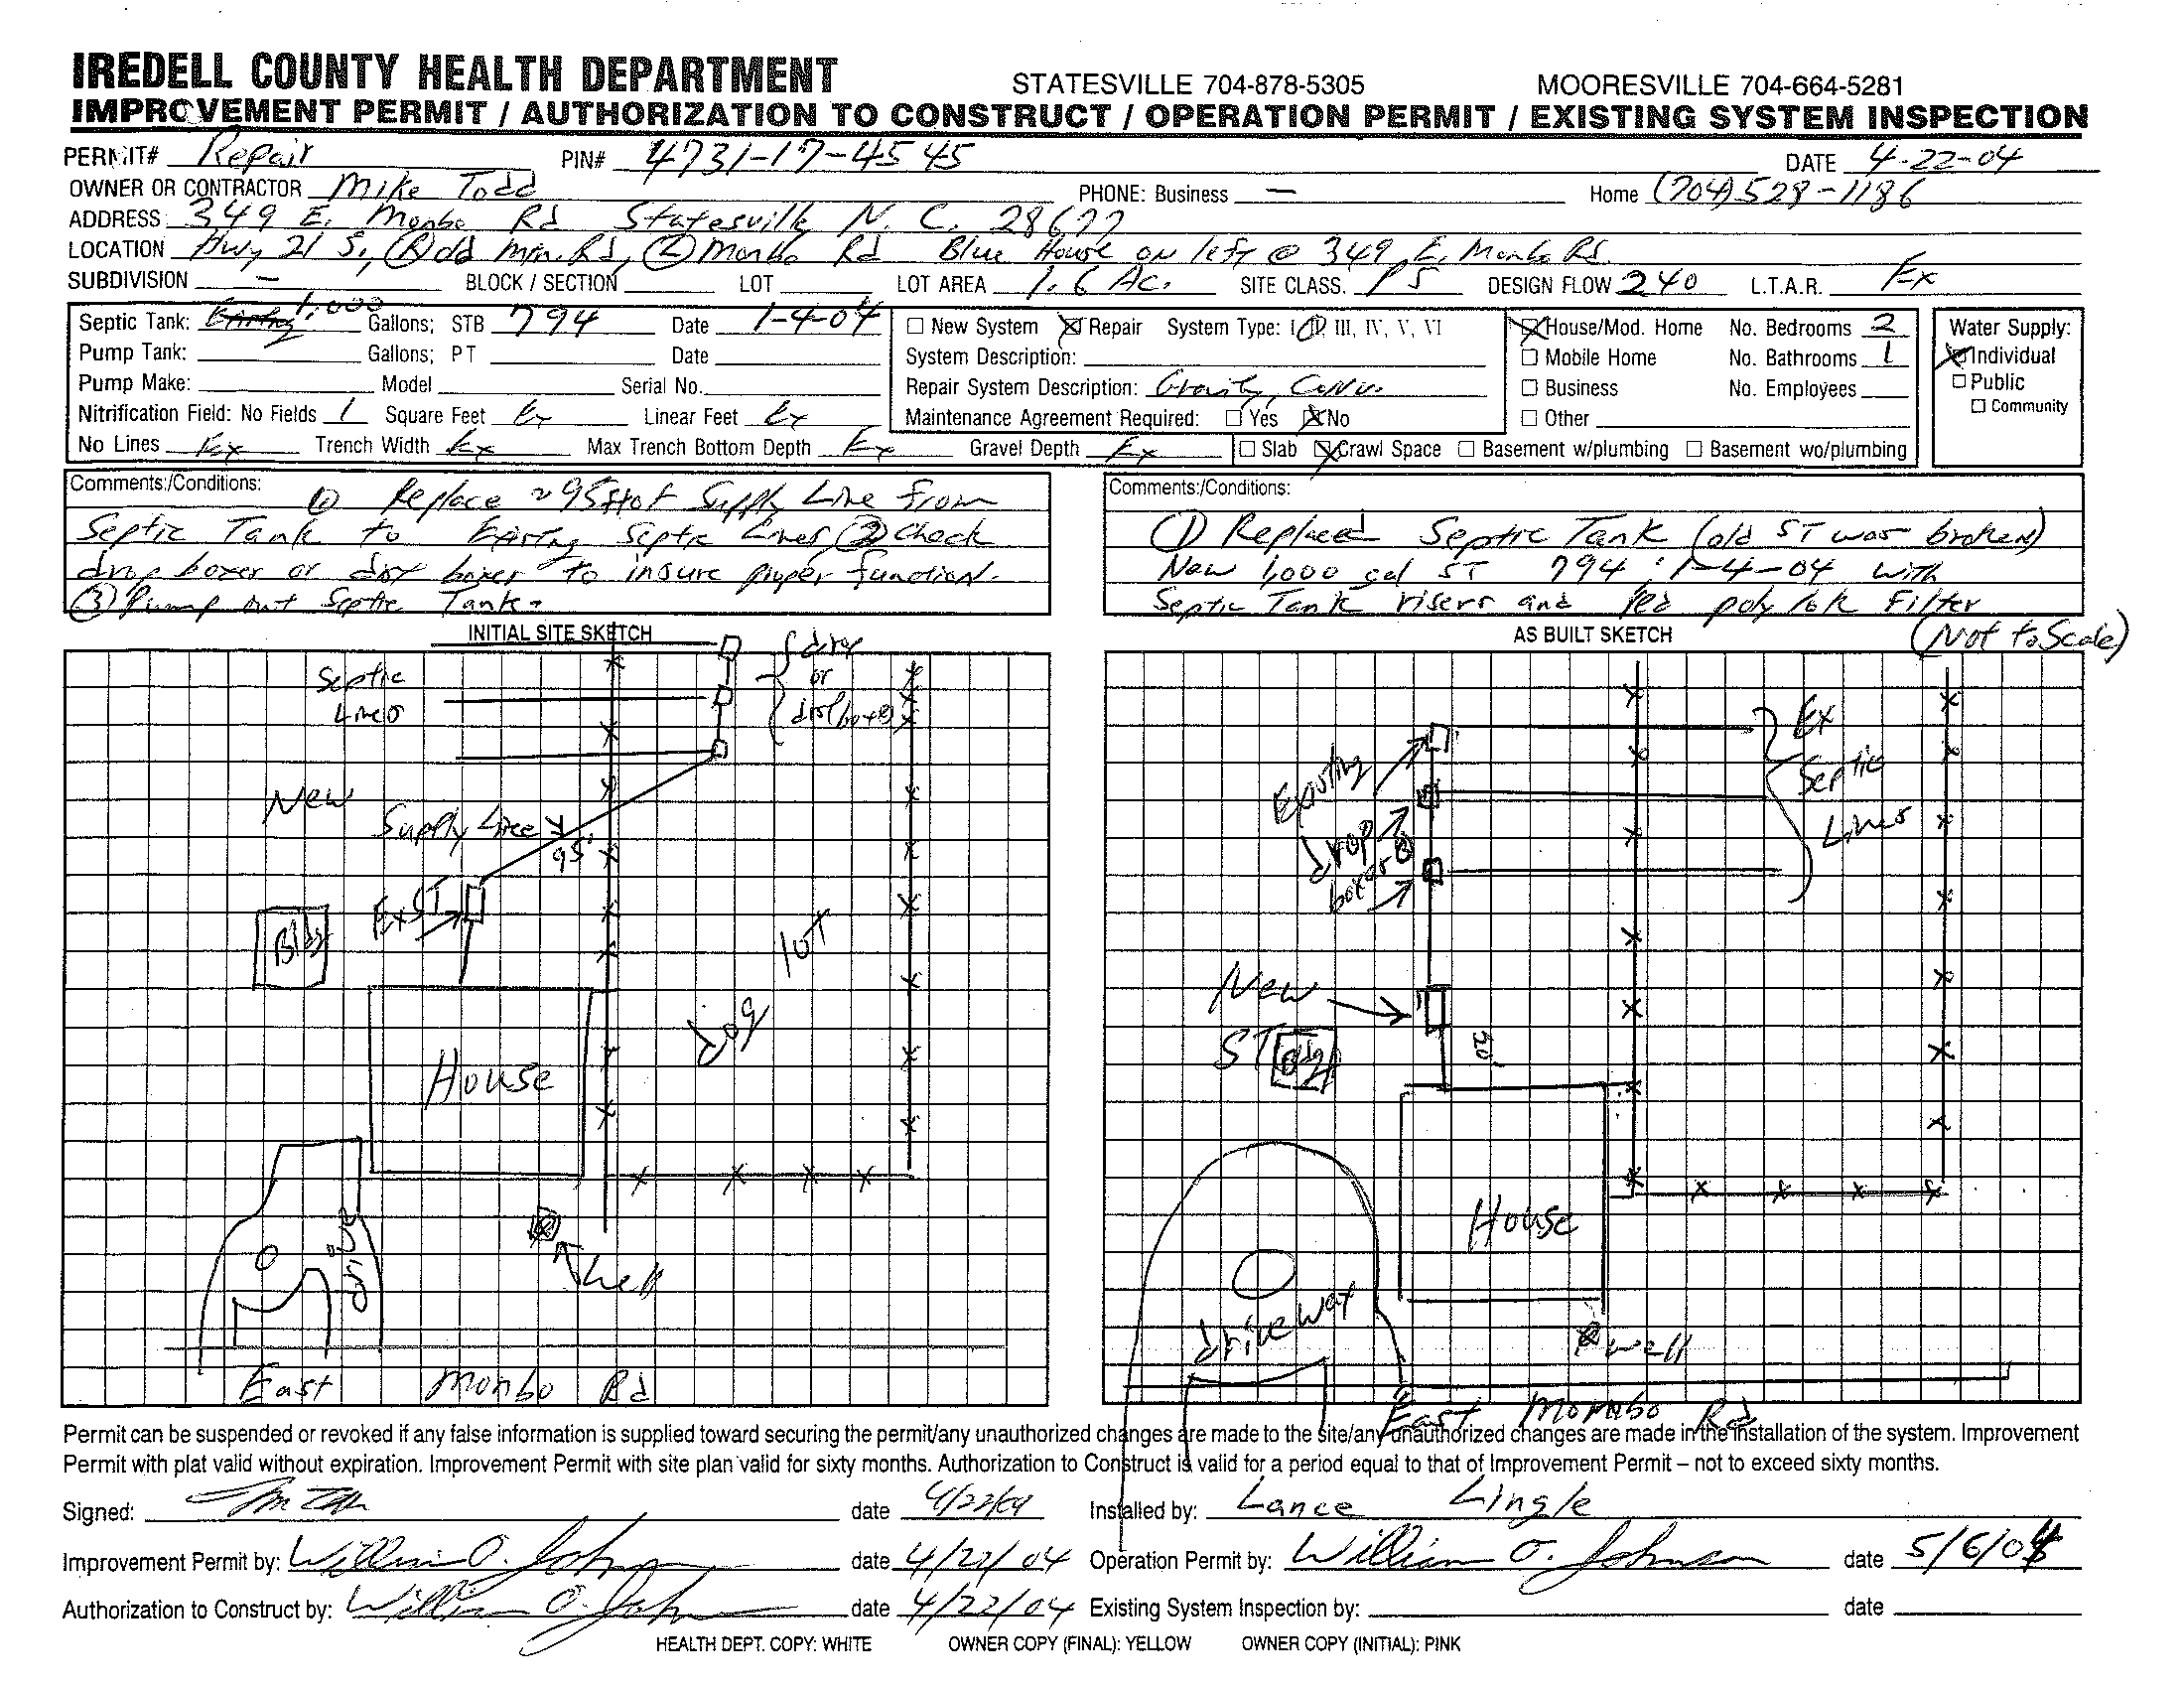 IREDELL COUNTY HEALTH DEPARTMENT STATESVILLE 704-878-5305 MOORESVILLE 704-664-5281
IMPROVEMENT PERMIT / AUTHORIZATION TO CONSTRUCT / OPERATION PERMIT / EXISTING SYSTEM INSPECTION
PERMIT# Repair PIN# 4731-17-4545 DATE 4-22-04
OWNER OR CONTRACTOR Mike Todd PHONE: Business — Home (704) 528-1186
ADDRESS: 349 E. Monbo Rd Statesville N.C. 28677
LOCATION Hwy 21 S., (R) old Mtn. Rd, (L) Monbo Rd Blue House on left @ 349 E. Monbo Rd.
SUBDIVISION — BLOCK / SECTION LOT LOT AREA 1.6 Ac. SITE CLASS. PS DESIGN FLOW 240 L.T.A.R. Ex
Septic Tank: Existing 1,000 Gallons; STB 794 Date 1-4-04 New System Repair System Type: I, II, III, IV, V, VI House/Mod. Home No. Bedrooms 2 Water Supply:
Pump Tank: Gallons; PT Date System Description: Mobile Home No. Bathrooms 1 Individual
Pump Make: Model Serial No. Repair System Description: Gravity, Conv. Business No. Employees Public
Nitrification Field: No Fields 1 Square Feet Ex Linear Feet Ex Maintenance Agreement Required: Yes No Other Community
No Lines Ex Trench Width Ex Max Trench Bottom Depth Ex Gravel Depth Ex Slab Crawl Space Basement w/plumbing Basement wo/plumbing
Comments:/Conditions: (1) Replace ~ 95 ft of Supply Line from
Septic Tank to Existing Septic Lines (2) Check
drop boxes or dist boxes to insure proper function.
(3) Pump out Septic Tank.
Comments:/Conditions:
(1) Replaced Septic Tank (old ST was broken)
New 1,000 gal ST 794 1-4-04 with
Septic Tank risers and red polylok Filter
INITIAL SITE SKETCH
Septic
Lines
drop
or
dist boxes
New
Supply Line
95'
Ex ST
Bldg
lot
dog
House
drive
well
East Monbo Rd
AS BUILT SKETCH (Not to Scale)
Ex
Septic
Lines
Existing
drop
boxes
New
ST
Bldg
20'
House
driveway
well
East Monbo Rd
Permit can be suspended or revoked if any false information is supplied toward securing the permit/any unauthorized changes are made to the site/any unauthorized changes are made in the installation of the system. Improvement
Permit with plat valid without expiration. Improvement Permit with site plan valid for sixty months. Authorization to Construct is valid for a period equal to that of Improvement Permit – not to exceed sixty months.
Signed: date 4/22/04 Installed by: Lance Lingle
Improvement Permit by: William O. Johnson date 4/22/04 Operation Permit by: William O. Johnson date 5/6/04
Authorization to Construct by: William O. Johnson date 4/22/04 Existing System Inspection by: date
HEALTH DEPT. COPY: WHITE OWNER COPY (FINAL): YELLOW OWNER COPY (INITIAL): PINK